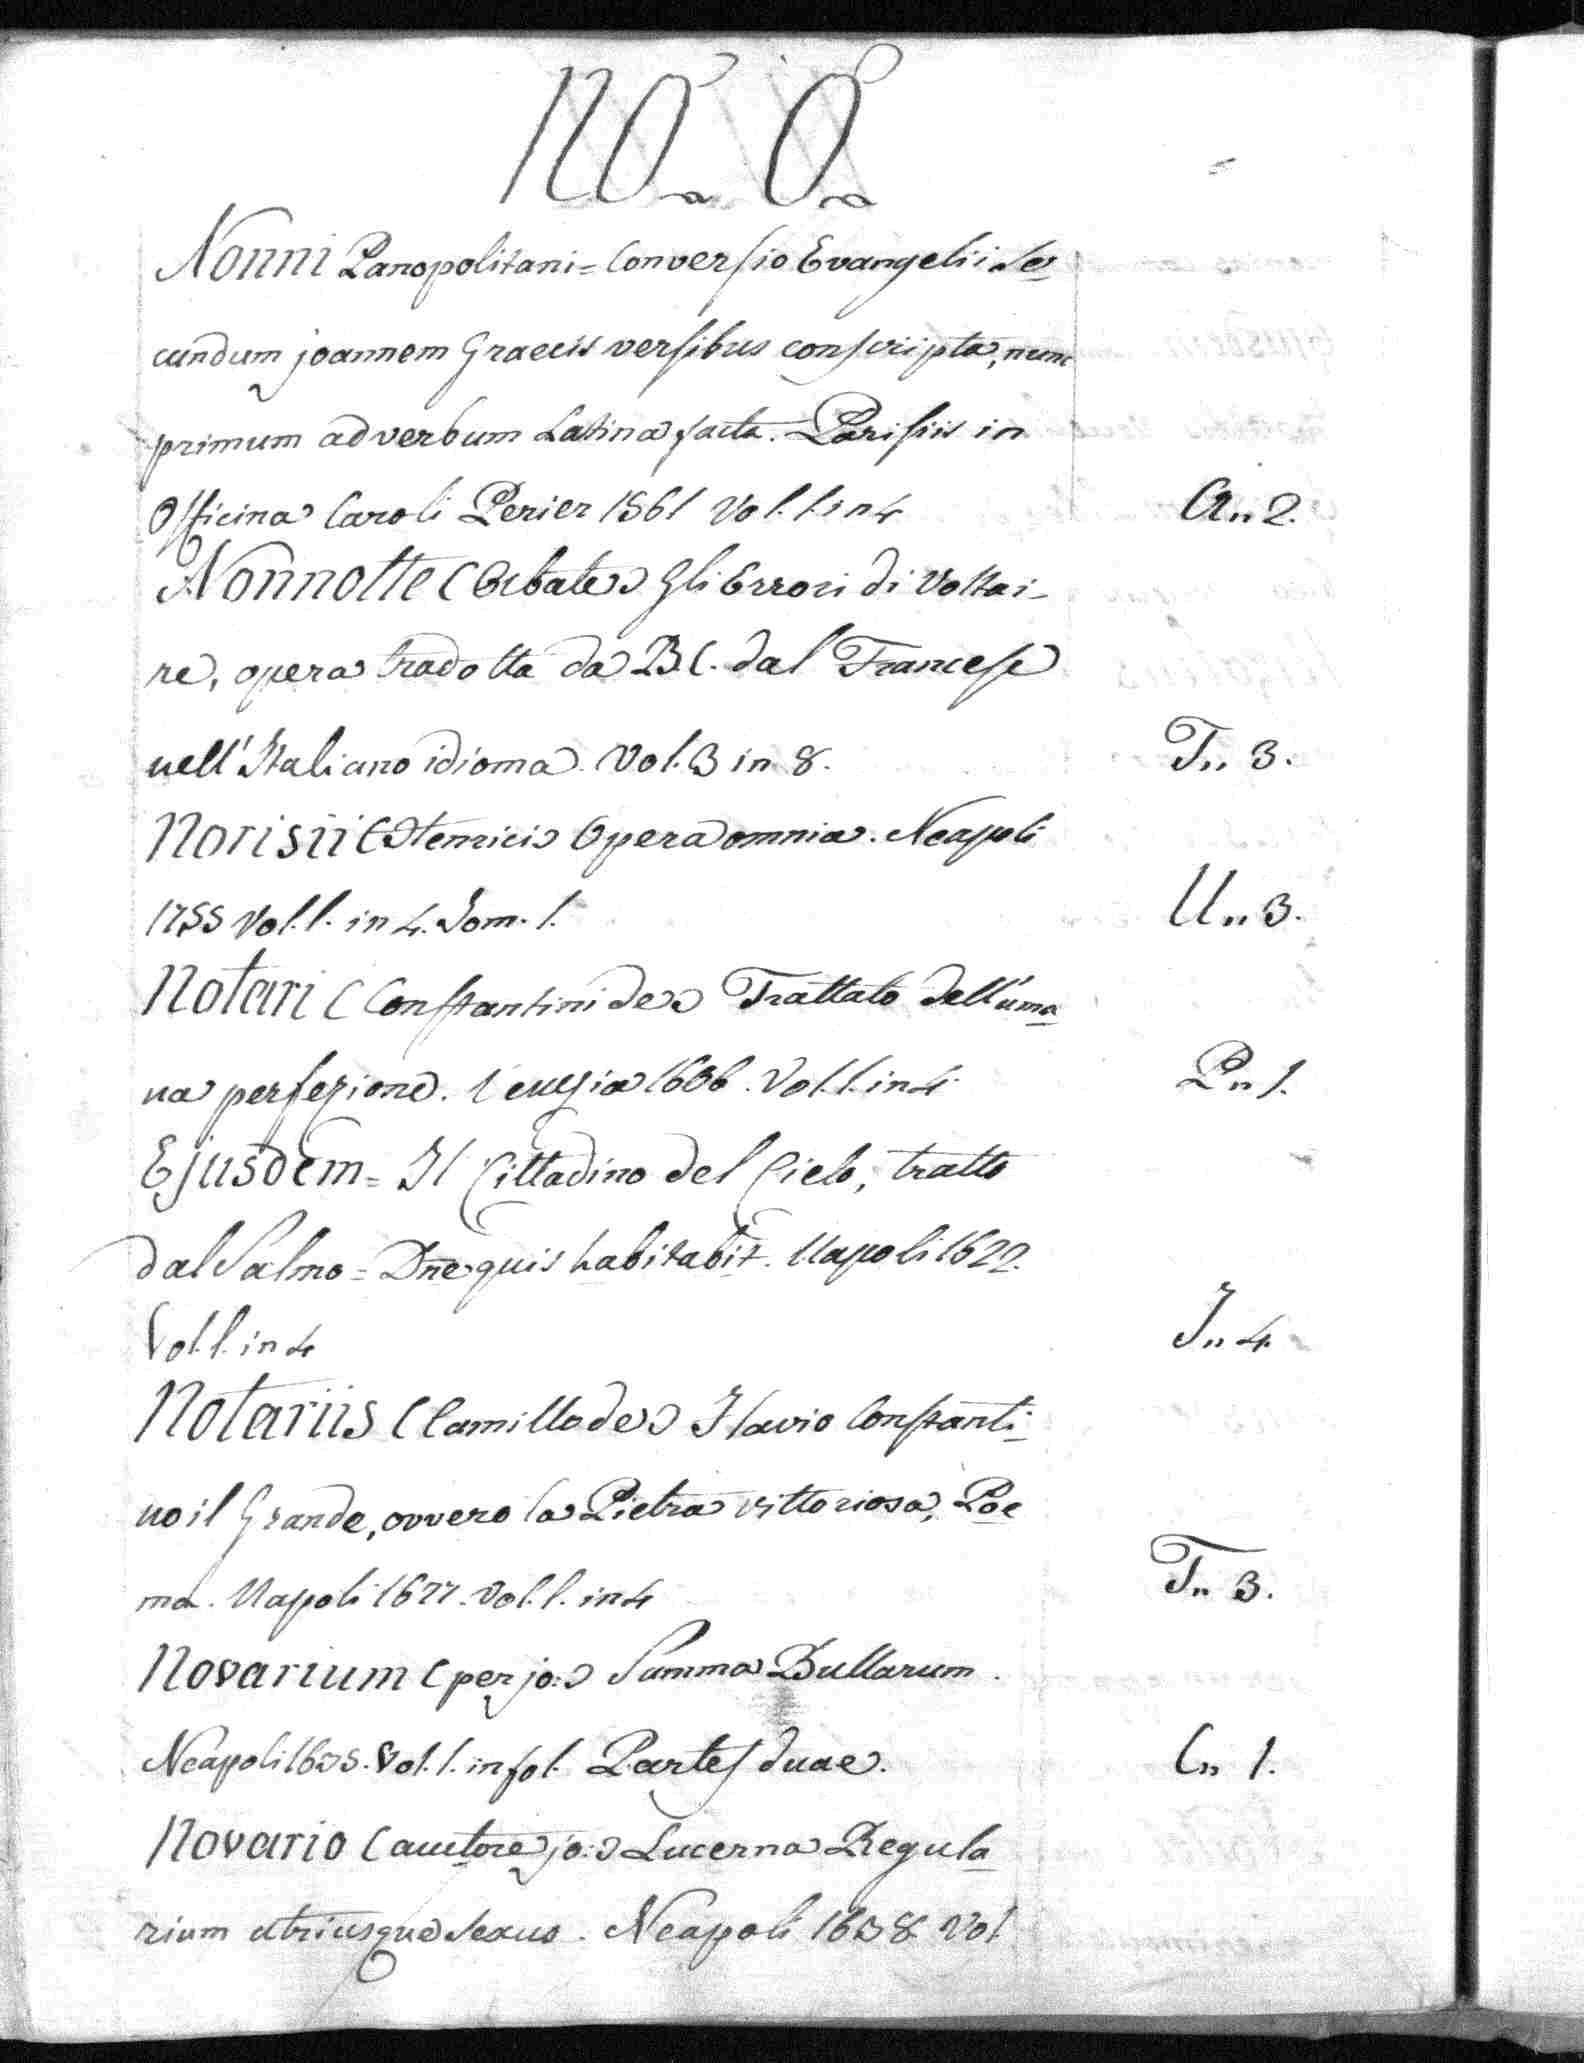 NO. O.
Nonni Panopolitani = Conversio Evangelii Se
cundum joannem Graecis versibus conscripta, nunc
primum ad verbum Latina facta. Parisiis in
Officina Caroli Perier 1561 Vol. 1. in 4 A„ 2.
Nonnotte (Abate) Gli Errori di Voltai-
re, opera tradotta da B.C. dal Francese
nell' Italiano idioma. Vol. 3 in 8. T„ 3.
Norisii (Henrici) Opera omnia. Neapoli
1755 Vol. 1. in 4. Tom. 1. U„ 3.
Notari (Constantini de) Trattato dell' uma
na perfezione. Venezia 1606. Vol. 1. in 4. P„ 1.
Ejusdem = Il Cittadino del Cielo, tratto
dal Salmo = Dne quis habitabit. Napoli 1622.
Vol. 1. in 4 I„ 4.
Notariis (Camillo de) Flavio Constanti
no il Grande, ovvero la Pietra vittoriosa, Poe
ma. Napoli 1677. Vol. 1. in 4 T„ 3.
Novarium (per jo:) Summa Bullarum.
Neapoli 1635. Vol. 1. in fol. Partes duae. C„ 1.
Novario (auctore jo:) Lucerna Regula
rium utriusque sexus. Neapoli 1638 Vol